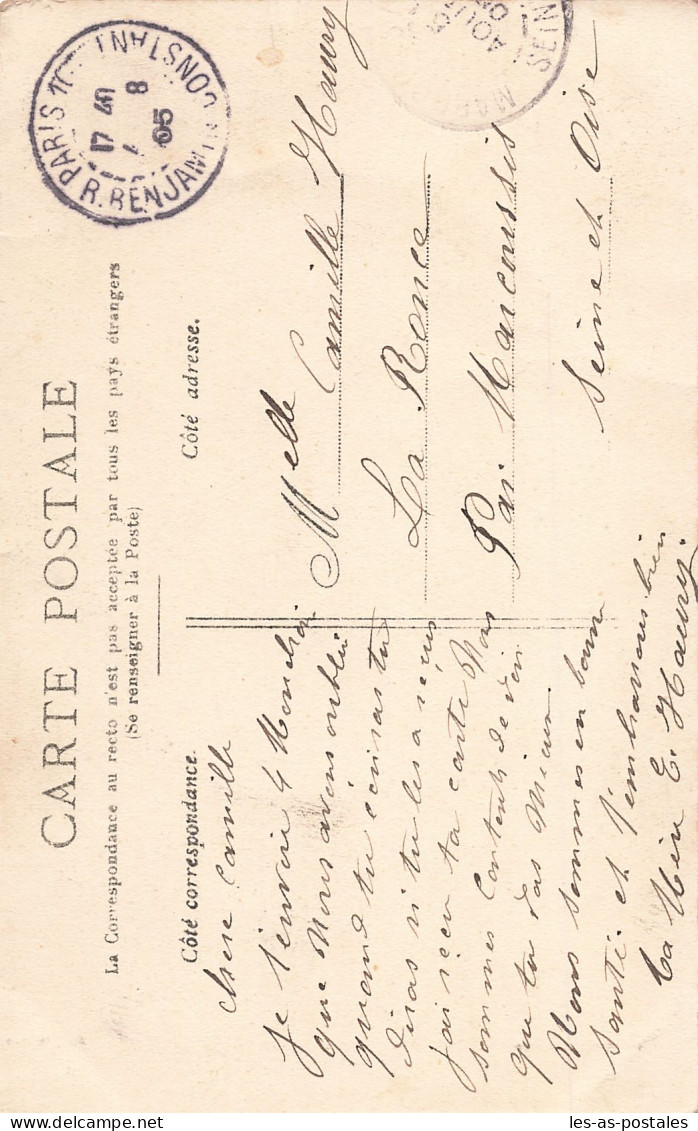 CARTE POSTALE
La Correspondance au recto n'est pas acceptée par tous les pays étrangers
(Se renseigner à la Poste)
Côté correspondance.
Chere Camille
Je t'envoie 4 Mouchoir
que Nous avons oublié
quand tu écriras tu
diras si tu les a reçus
j'ai reçu ta carte Nous
sommes Contents de voir
que tu vas Mieux
Nous sommes en bonne
santé et t'embrassons bien
ta Mère E. Haury.
Côté adresse.
Melle Camille Haury
La Ronce
Par Marcoussis
Seine et Oise
PARIS
R. BENJAMIN CONSTANT
17 45
4 8
05
AOUT
05
SEIN
MAR
© delcampe.net
les-as-postales